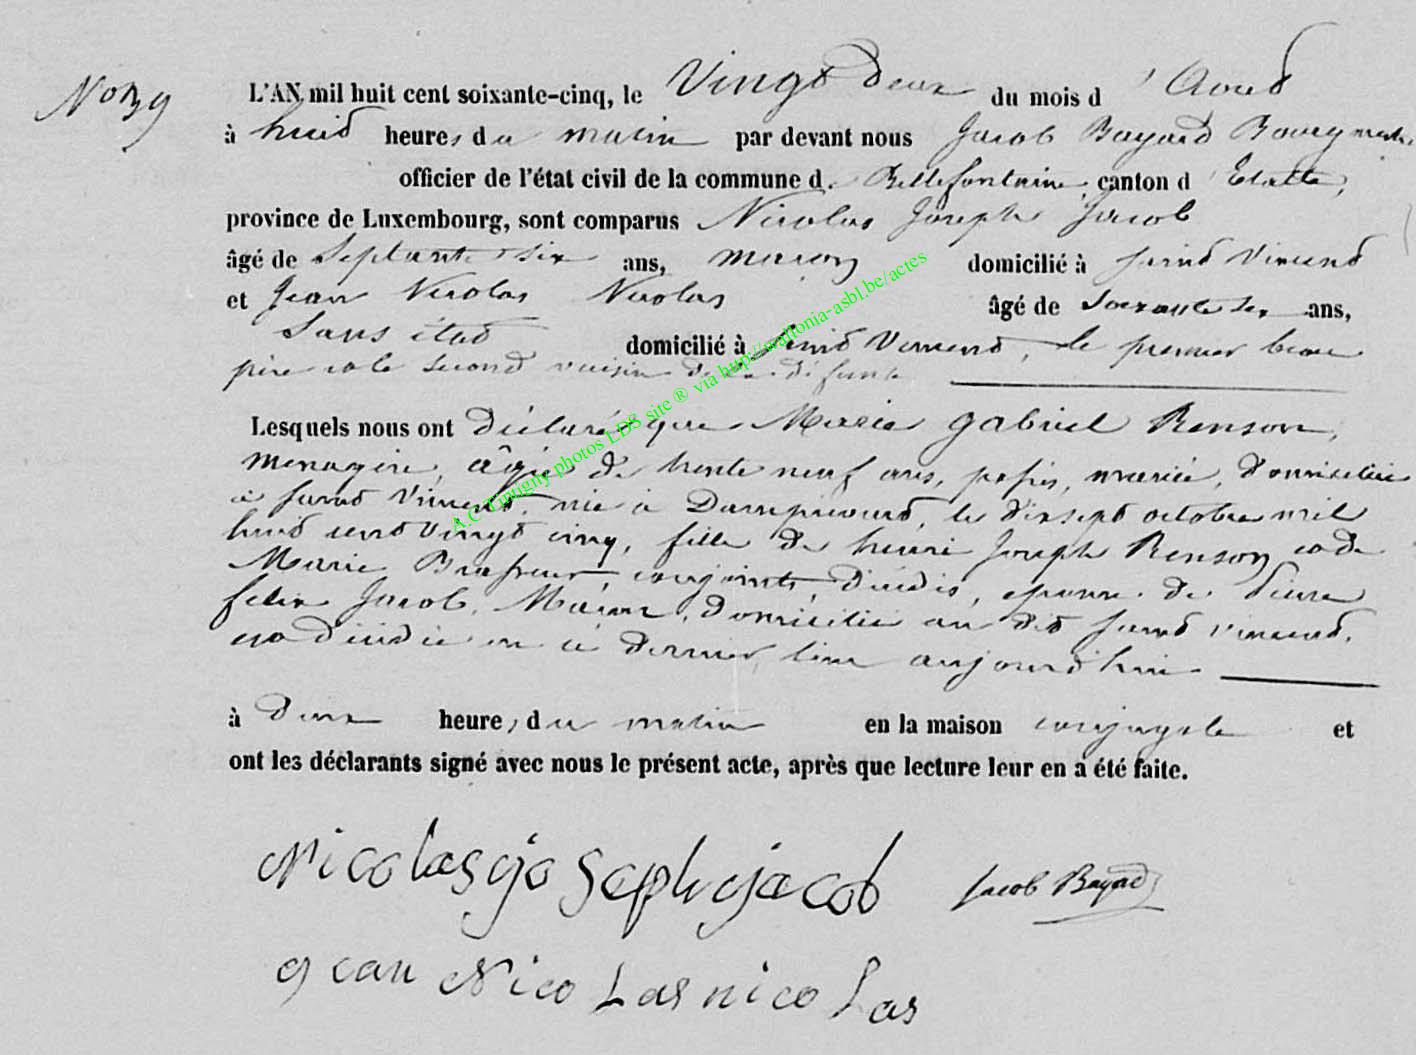 No 39
L'AN mil huit cent soixante-cinq, le Vingt deux du mois d'Aout
à huit heures du matin par devant nous Jacob Bayard Bourgmestre
officier de l'état civil de la commune de Bellefontaine canton d'Etalle,
province de Luxembourg, sont comparus Nicolas Joseph Jacob
âgé de Septante six ans, maçon domicilié à saint Vincent
et Jean Nicolas Nicolas âgé de soixante six ans,
Sans état domicilié à saint Vincent, le premier beau
père et le second voisin de la défunte
Lesquels nous ont déclaré que Marie gabriel Renson,
menagère, âgée de trente neuf ans, mariée, domiciliée
à saint Vincent, née à Dampicourt, le dixsept octobre mil
huit cent vingt cinq, fille de henri Joseph Renson et de
Marie Brasseur, conjoints, décédés, épouse de Pierre
felix Jacob, Maçon, domicilié au dit saint vincent,
est décédée en ce dernier lieu aujourd'hui
à deux heures du matin en la maison conjugale et
ont les déclarants signé avec nous le présent acte, après que lecture leur en a été faite.
Nicolas joseph jacob Jacob Bayard
jean Nicolas nicolas
A.C. Tintigny photos LDS site ® via http://wallonia-asbl.be/actes